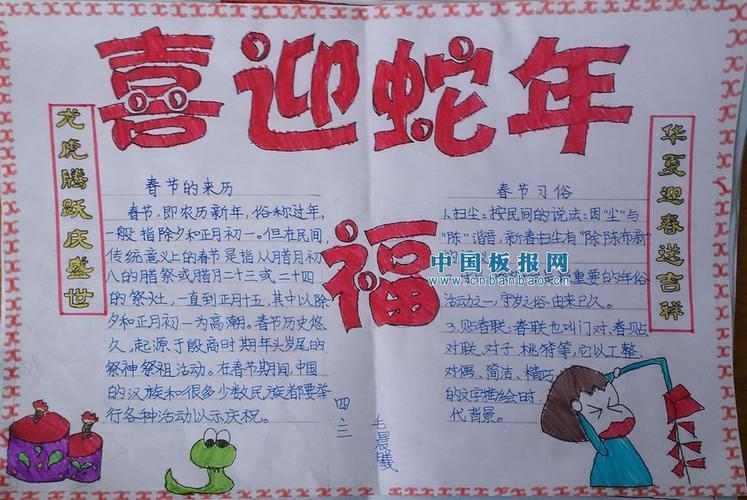 喜迎蛇年
龙虎腾跃庆盛世
春节的来历
春节，即农历新年，俗称过年，
一般指除夕和正月初一。但在民间，
传统意义上的春节是指从腊月初
八的腊祭或腊月二十三或二十四
的祭灶，一直到正月十五，其中以除
夕和正月初一为高潮。春节历史悠
久，起源于殷商时期年头岁尾的
祭神祭祖活动。在春节期间，中国
的汉族和很多少数民族都要举
行各种活动以示庆祝。
福
春节习俗
1.扫尘：按民间的说法：因“尘”与
“陈”谐音，新春扫尘有“除陈布新”
重要的年俗
活动之一，守岁之俗由来已久。
3.贴春联：春联也叫门对、春贴
对联、对子、桃符等，它以工整、
对偶、简洁、精巧
的文字描绘时
代背景。
华夏迎春送吉祥
中国板报网
www.cnbanbao.cn
四三
毛晨曦